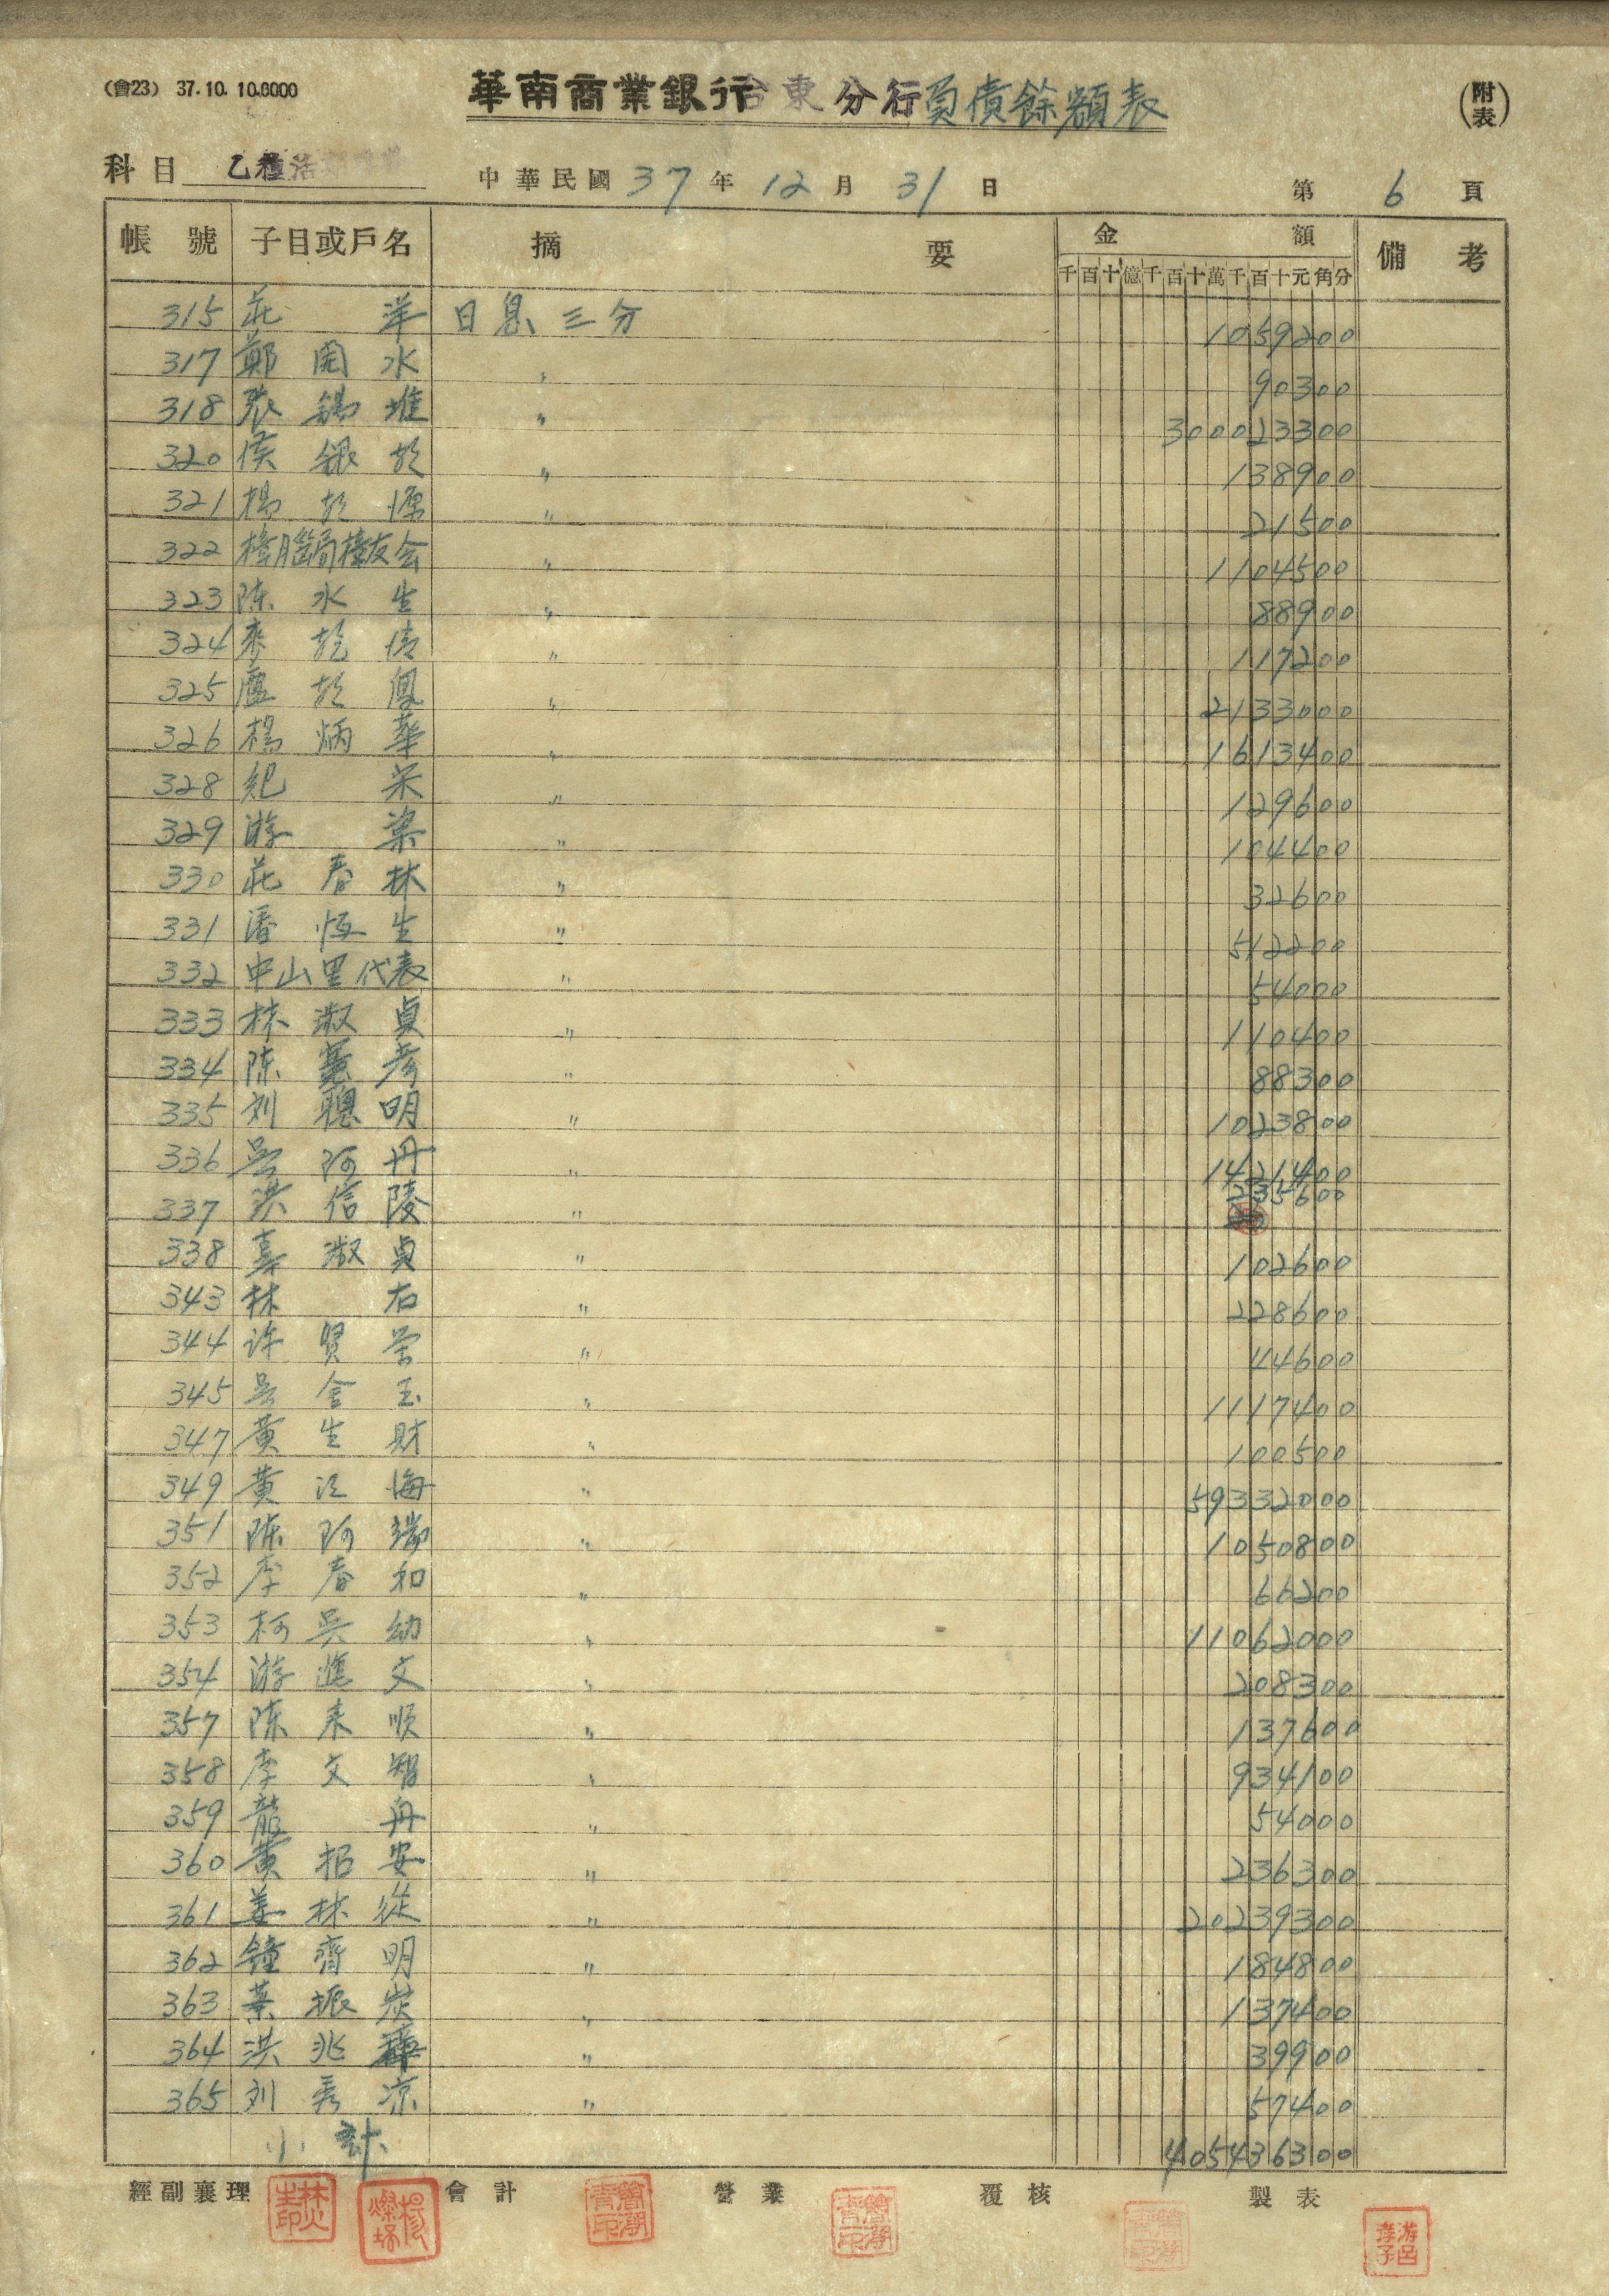 (會23) 37.10.10.0000
華南商業銀行台東分行負債餘額表
(附表)
科目 乙種活
中華民國 37 年 12 月 31 日
第 6 頁
帳號 子目或戶名 摘要 金額 備考
千百十億千百十萬千百十元角分
315 莊洋 日息三分 1059200
317 鄭開水 〃 90300
318 張錫堆 〃 300023300
320 侯銀 〃 138900
321 楊 〃 21500
322 樟腦局樟友会 〃 1104500
323 陈水生 〃 88900
324 〃 117200
325 盧鳳 〃 2133000
326 楊炳華 〃 1613400
328 紀 〃 129600
329 游 〃 104400
330 莊春林 〃 32600
331 潘恆生 〃 512200
332 中山里代表 〃 54000
333 林淑貞 〃 110400
334 陈 〃 88300
335 刘聰明 〃 1023800
336 吳阿丹 〃 1421400
337 洪信陵 〃 235600
338 淑貞 〃 102600
343 林右 〃 228600
344 许賢 〃 44600
345 吳金玉 〃 1117400
347 黃生財 〃 100500
349 黃海 〃 59332000
351 陈阿瑞 〃 1050800
352 李春和 〃 66200
353 柯吳幼 〃 11062000
354 游進文 〃 208300
357 陈来順 〃 137600
358 李文智 〃 934100
359 龍舟 〃 54000
360 黃招安 〃 236300
361 姜林從 〃 20239300
362 鐘齊明 〃 184800
363 葉振炭 〃 137400
364 洪兆 〃 39900
365 刘秀凉 〃 57400
小計 405436300
經副襄理 會計 營業 覆核 製表